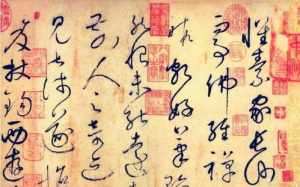 懷素家長沙
事佛經禪
暇頗好筆翰
然恨未能遠
前人之奇迹
見甚淺遂擔
笈杖錫西遊